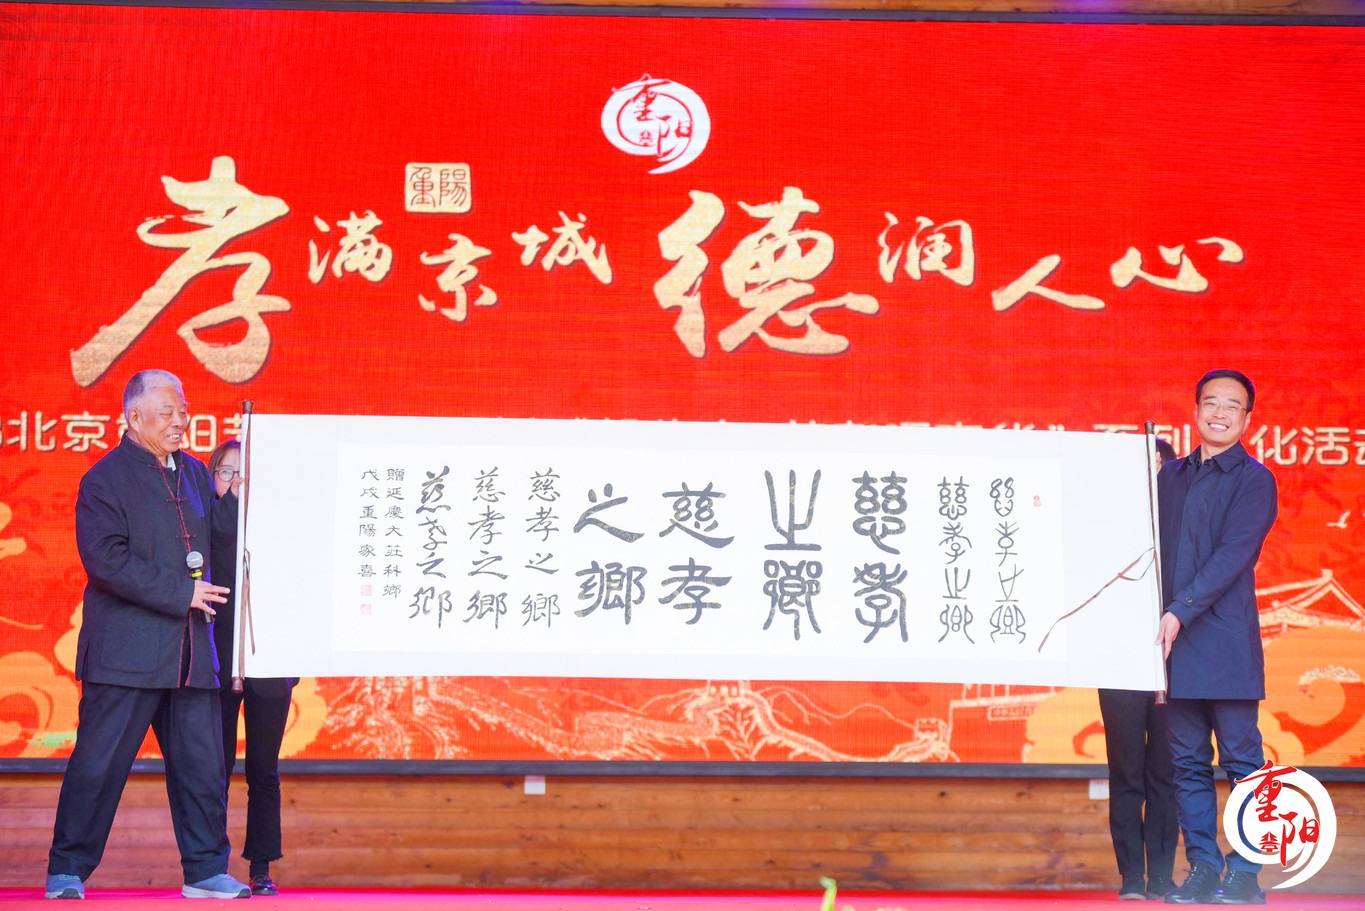 重阳
重陽
孝满京城 德润人心
北京重阳节
系列
化活动
慈孝之鄉
慈孝之鄉
慈孝
之鄉
慈孝
之鄉
慈孝之鄉
慈孝之鄉
慈孝之鄉
贈延慶大莊科鄉
戊戌重陽家喜
重阳